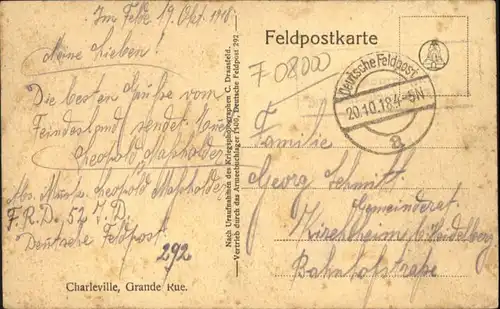 Im Felde 19. Okt. 1918
Meine Lieben!
Die besten Grüße vom
Feindesland sendet Euch
Leopold
Abs. Leopold
F.R.D. 52 I.D.
Deutsche Feldpost
292
Charleville, Grande Rue.
Nach Uraufnahmen des Kriegsphotographen C. Dransfeld.
Vertrieb durch das Armeebuchlager Deutsche Feldpost 292.
Feldpostkarte
F 08000
Deutsche Feldpost
20.10.18.4-5N
a
Familie
Georg Schmitt
Gemeinderat
Kirchheim b. Heidelberg
Bahnhofstraße